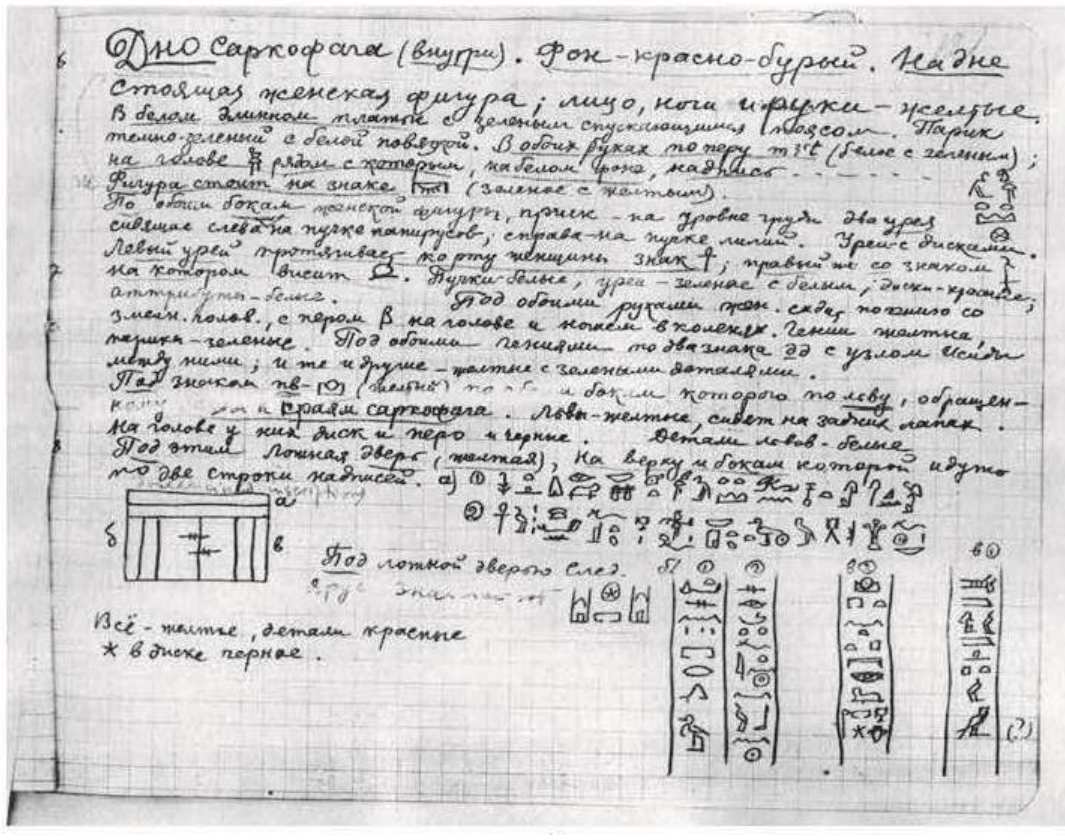 Дно саркофага (внутри). Фон - красно-бурый. На дне
стоящая женская фигура; лицо, ноги и руки - желтые.
В белом длинном платье с зеленым спускающимся поясом. Парик
темно-зеленый с белой повязкой. В обоих руках по перу m3't (белое с зеленым);
на голове рядом с которым, на белом фоне, надпись
Фигура стоит на знаке (зеленое с желтым).
По обоим бокам женской фигуры, приск - на уровне груди два урея
сидящие слева на пучке папирусов; справа - на пучке лилий. Уреи с дисками.
Левый урей протягивает ко рту женщины знак ☥; правый же со знаком
на котором висит Ω. Пучки - белые, уреи - зеленые с белым, диски - красные;
аттрибуты - белые. Под обоими руками жен. сидит по гению со
змеин. голов., с пером β на голове и ножем в коленях. Гении желтые,
парики - зеленые. Под обоими гениями - по два знака дд с узлом Исиды
между ними; и те и другие - желтые с зелеными деталями.
Под знаком нв - (желтый) и бокам которого по льву, обращен-
краям саркофага. Львы - желтые, сидят на задних лапах.
На голове у них диск и перо и черные. Детали львов - белые
Под этим ложная дверь (желтая), на верху и бокам которой идут
по две строки надписей. а) ①
②
а
б в
Под ложной дверью след. б) ① ② в ②  в ①
Всё - желтые, детали красные
* в диске черное.
(?)